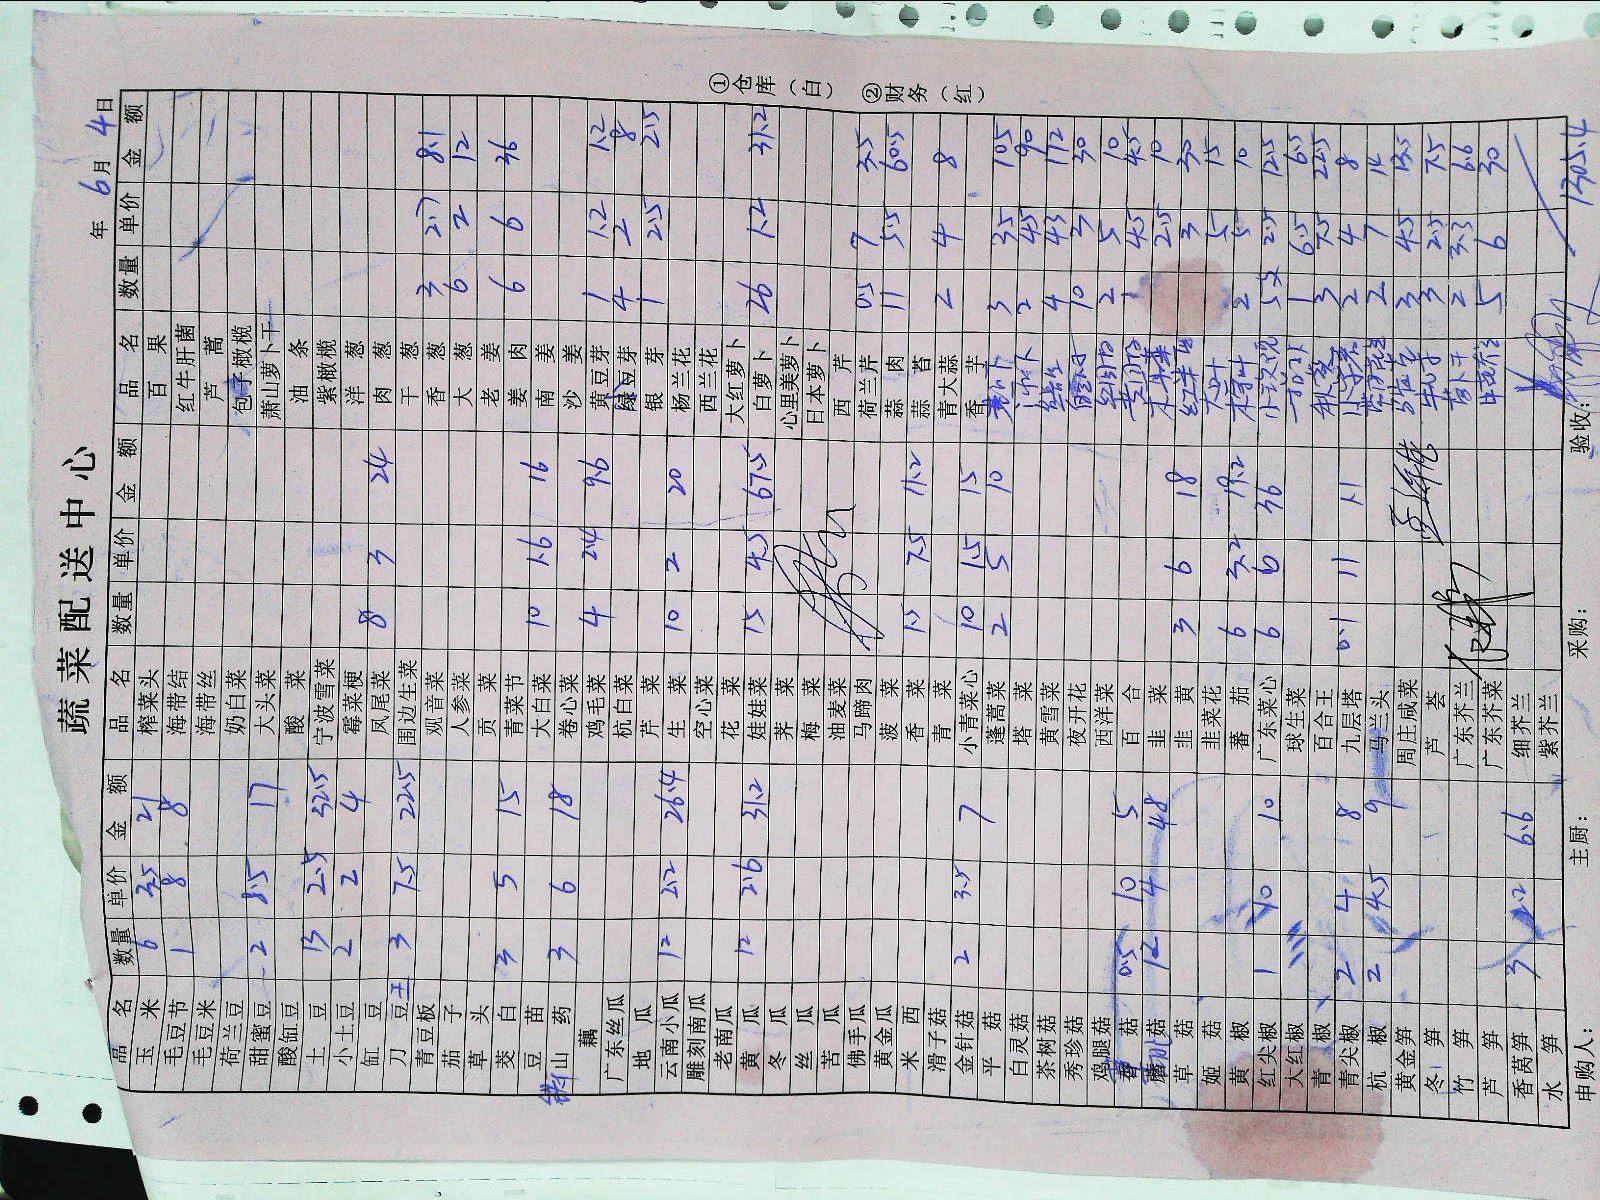 蔬菜配送中心
年 6月 4日
品名 数量 单价 金额 品名 数量 单价 金额 品名 数量 单价 金额
玉米 6 3.5 21
毛豆节 1 8 8
毛豆米
荷兰豆
甜蜜豆 2 8.5 17
酸缸豆
土豆 13 2.5 32.5
小土豆 2 2 4
缸豆
刀豆 3 7.5 22.5
青豆板
茄子
草头
茭白 3 5 15
豆苗
山药 3 6 18
藕
广东丝瓜
地瓜
云南小瓜 12 2.2 26.4
雕刻南瓜
老南瓜
黄瓜 12 2.6 31.2
冬瓜
丝瓜
苦瓜
佛手瓜
黄金瓜
米西
滑子菇
金针菇 2 3.5 7
平菇
白灵菇
茶树菇
秀珍菇
鸡腿菇
香菇 0.5 10 5
蘑菇 12 4 48
草菇
姬菇
黄椒
红尖椒 1 10 10
大红椒
青椒
青尖椒 2 4 8
杭椒 2 4.5 9
黄金笋
冬笋
竹笋
芦笋
香莴笋 3 2.2 6.6
水笋
榨菜头
海带结
海带丝
奶白菜
大头菜
酸菜
宁波雪菜
霉菜梗
凤尾菜 8 3 24
围边生菜
观音菜
人参菜
贡菜
青菜节
大白菜 10 1.6 16
卷心菜
鸡毛菜 4 2.4 9.6
杭白菜
芹菜
生菜 10 2 20
空心菜
花菜
娃娃菜 15 4.5 67.5
荠菜
梅菜
油麦菜
马蹄肉
菠菜
香菜 1.5 7.5 11.2
青菜
小青菜心 10 1.5 15
蓬蒿菜 2 5 10
塔菜
黄雪菜
夜开花
西洋菜
百合
韭菜
韭黄 3 6 18
韭菜花
蕃茄 6 3.2 19.2
广东菜心 6 6 36
球生菜
百合王
九层塔 0.1 11 1.1
马兰头
周庄咸菜
芦荟
广东芥兰
广东芥菜
细芥兰
紫芥兰
百果
红牛肝菌
芦蒿
包子橄榄
萧山萝卜干
油条
紫橄榄
洋葱
肉葱
干葱
香葱 3 2.7 8.1
大葱 6 2 12
老姜
姜肉 6 6 36
南姜
沙姜
黄豆芽 1 1.2 1.2
绿豆芽 4 2 8
银芽 1 2.5 2.5
杨兰花
西兰花
大红萝卜
白萝卜 26 1.2 31.2
心里美萝卜
日本萝卜
西芹
荷兰芹 0.5 7 3.5
蒜肉 11 5.5 60.5
蒜苔
青大蒜 2 4 8
香芋
3 3.5 10.5
2 4.5 90
4 43 172
10 3 30
2 5 10
1 4.5 4.5
2.5 10
3 30
5 15
2 5 10
5 2.5 12.5
1 6.5 6.5
3 7.5 22.5
2 4 8
2 7 14
3 4.5 13.5
3 2.5 7.5
2 3.3 6.6
5 6 30
1305.4
申购人： 主厨： 采购： 验收：
①仓库（白） ②财务（红）